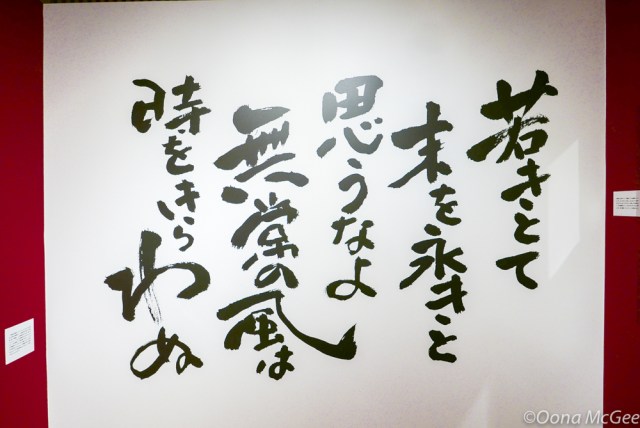 若きとて
末を永きと
思うなよ
無常の風は
時をきら
わぬ
©Oona McGee